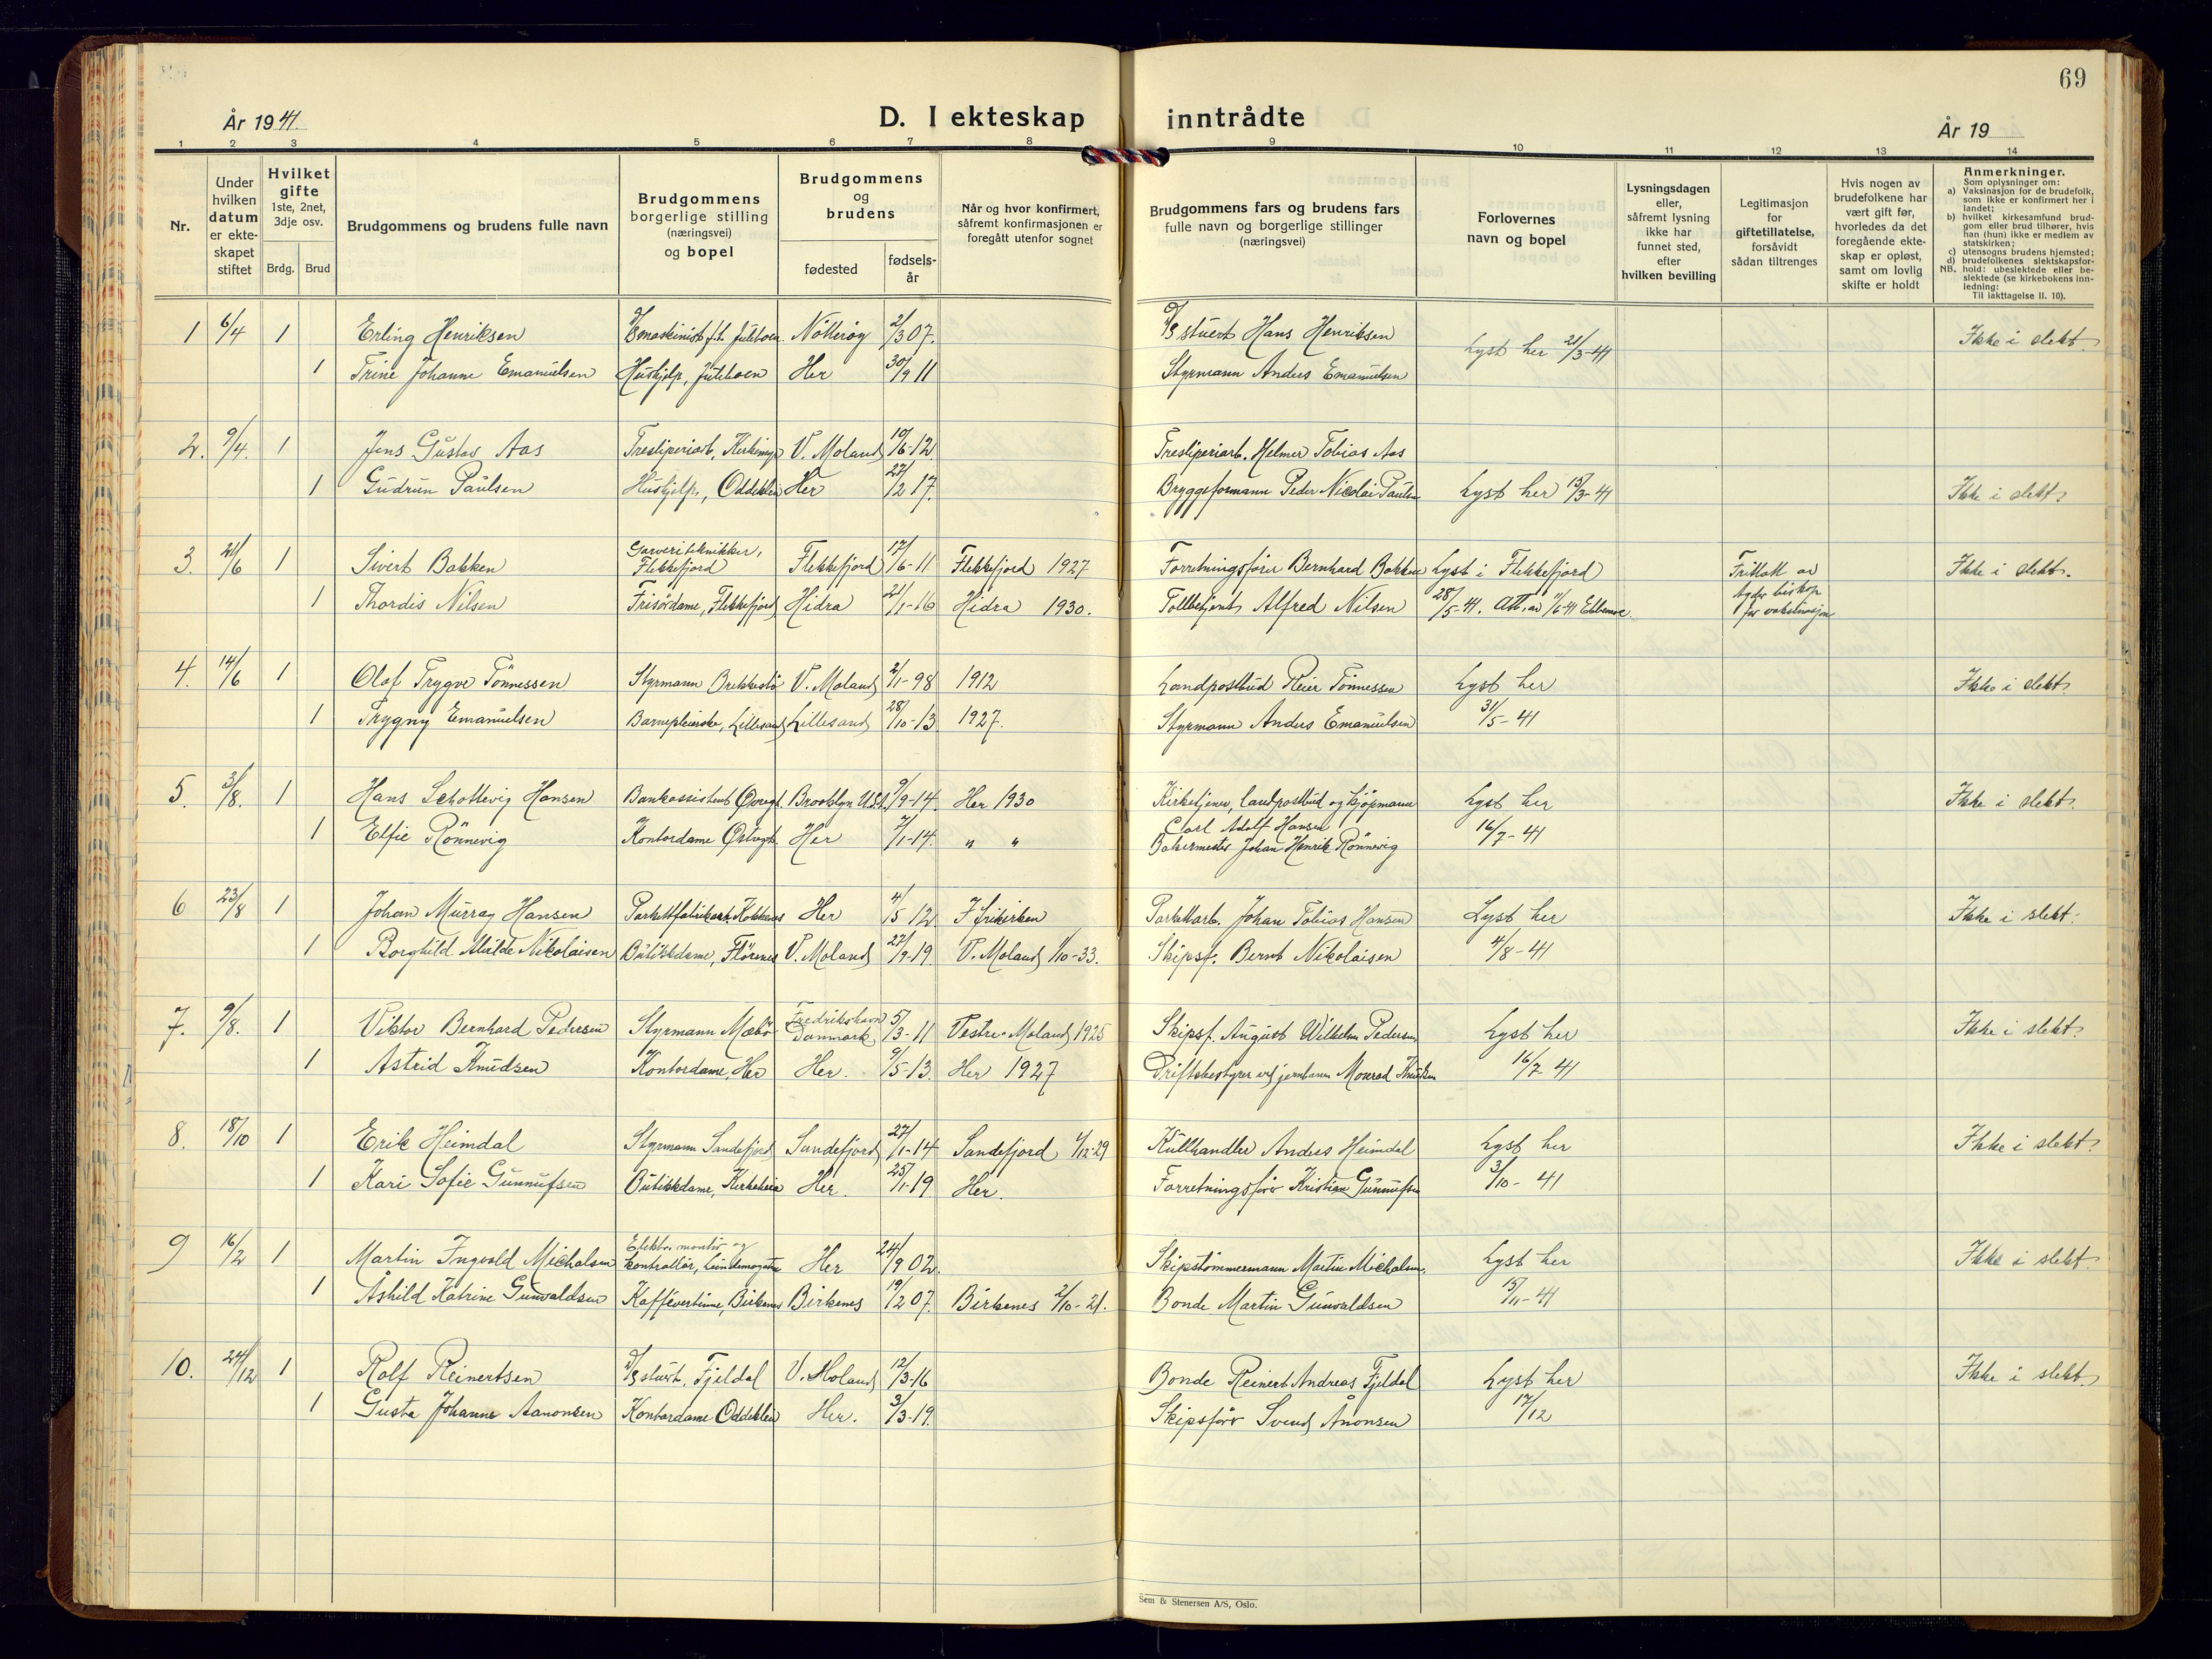 69
År 1941.
D. I ekteskap inntrådte
År 19
1 2 3 4 5 6 7 8 9 10 11 12 13 14
Nr.
Under hvilken datum er ekte-skapet stiftet
Hvilket gifte 1ste, 2net, 3dje osv.
Brdg. Brud
Brudgommens og brudens fulle navn
Brudgommens borgerlige stilling (næringsvei) og bopel
Brudgommens og brudens
fødested
fødsels-år
Når og hvor konfirmert, såfremt konfirmasjonen er foregått utenfor sognet
Brudgommens fars og brudens fars fulle navn og borgerlige stillinger (næringsvei)
Forlovernes navn og bopel
Lysningsdagen eller, såfremt lysning ikke har funnet sted, efter hvilken bevilling
Legitimasjon for giftetillatelse, forsåvidt sådan tiltrenges
Hvis nogen av brudefolkene har vært gift før, hvorledes da det foregående ekte-skap er opløst, samt om lovlig skifte er holdt
Anmerkninger.
Som oplysninger om:
a) Vaksinasjon for de brudefolk, som ikke er konfirmert her i landet;
b) hvilket kirkesamfund brud-gom eller brud tilhører, hvis han (hun) ikke er medlem av statskirken;
c) utensogns brudens hjemsted;
d) brudefolkenes slektskapsfor-hold: ubeslektede eller be-slektede (se kirkebokens inn-ledning:
NB. Til iakttagelse II. 10).
1 6/4 1 Erling Henriksen Nøtterøy 2/3 07. stuert Hans Henriksen Lyst her 21/3-41 Ikke i slekt.
1 Trine Johanne Emanuelsen Hushjelp, Her 30/9 11 Styrmann Anders Emanuelsen
2. 9/4. 1 Jens Gustav Aas Tresliperiarb. V. Moland 10/6-12 Tresliperiarb. Helmer Tobias Aas
1 Gudrun Paulsen Hushjelp, Her 27/2 17. Bryggeformann Peder Nicolai Paulsen Lyst her 15/3-41 Ikke i slekt.
3. 21/6 1 Sivert Bakken Garveritekniker, Flekkefjord Flekkefjord 17/6-11 Flekkefjord 1927 Forretningsfører Bernhard Bakken Lyst i Flekkefjord Fritatt av Ikke i slekt.
1 Thordis Nilsen Frisørdame, Flekkefjord Hidra 21/1-16 Hidra 1930. Tollbetjent Alfred Nilsen 28/5-41. Att. av Agder biskop for vaksinasjon
4. 14/6 1 Olaf Trygve Tönnessen Styrmann Brekkestø V. Moland 2/1-98 1912 Landpostbud Reier Tönnessen Lyst her Ikke i slekt.
1 Trygny Emanuelsen Barnepleierske, Lillesand Lillesand 28/10-13 1927. Styrmann Anders Emanuelsen 31/5-41
5. 3/8. 1 Hans Schottevig Hansen Bankassistent Brooklyn U.S.A. 9/9-14. Her 1930 Kirketjener, landpostbud og kjøpmann Lyst her Ikke i slekt.
Carl Adolf Hansen
1 Elfie Rönnevig Kontordame Her 7/1-14. " " Bakermester Johan Henrik Rönnevig 16/7-41
6 23/8 1 Johan Murray Hansen Her 4/5 12 I frikirken Parkettarb. Johan Tobias Hansen Lyst her Ikke i slekt.
1 Borghild Alvilde Nikolaisen Butikkdame, V. Moland 27/9-19. V. Moland 1/10-33. Skipsf. Bernt Nikolaisen 4/8-41
7. 9/8. 1 Viktor Bernhard Pedersen Styrmann Fredrikshavn Danmark 5/3-11 Vestre-Moland 1925 Skipsf. August Wilhelm Pedersen Lyst her Ikke i slekt.
1 Astrid Knudsen Kontordame, Her Her. 9/5-13. Her 1927 Driftsbestyrer ved jernbanen Monrad Knudsen 16/7 41
8. 18/10 1 Erik Heimdal Styrmann Sandefjord Sandefjord 27/1-14 Sandefjord 1/12-29 Kullhandler Anders Heimdal Lyst her Ikke i slekt.
1 Kari Sofie Gunnufsen Butikkdame, Kirkeheia Her. 25/1-19 Her. Forretningsfører Kristian Gunnufsen 3/10-41
9 16/2 1 Martin Ingvald Michalsen Elektro montør og kontrollør, Her 24/9 02. Skipstömmermann Martin Michalsen. Lyst her Ikke i slekt.
1 Åshild Katrine Gunvaldsen Kaffevertinne, Birkenes Birkenes 19/2 07. Birkenes 2/10-21. Bonde Martin Gunvaldsen 15/11-41
10. 24/12 1 Rolf Reinertsen stuert, Fjeldal V. Moland 12/3-16 Bonde Reinert Andreas Fjeldal Lyst her Ikke i slekt.
1 Gusta Johanne Aanonsen Kontordame Her. 3/3-19. Skipsfører Svend Ånonsen 17/12
Sem & Stenersen A/S, Oslo.